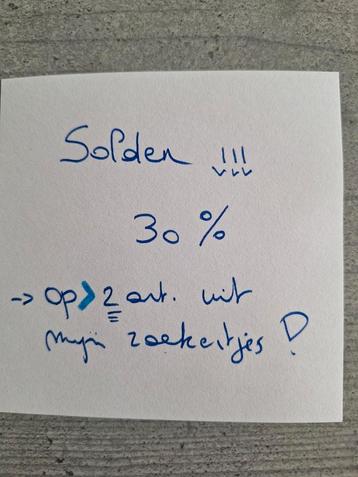 Solden !!!
30 %
-> op > 2 art. uit
mijn zoekertjes !